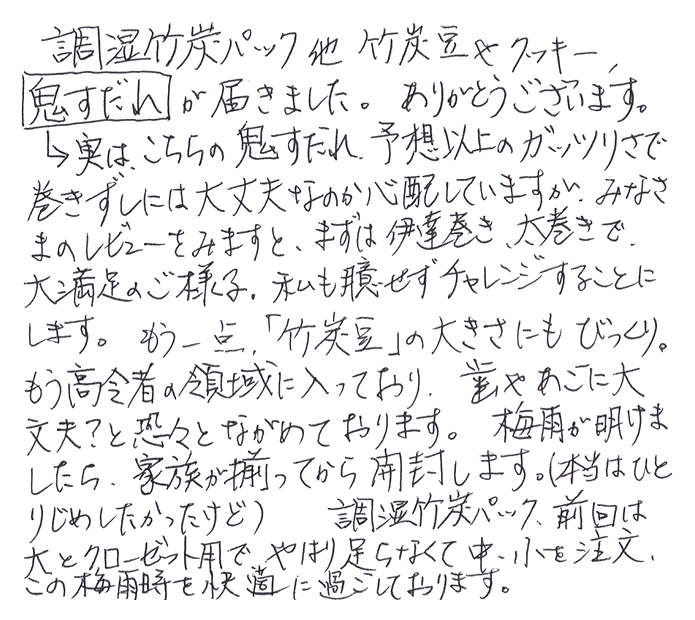 調湿竹炭パック他 竹炭豆やクッキー、
鬼すだれが届きました。ありがとうございます。
↳実は、こちらの鬼すだれ、予想以上のガッツリさで
巻きずしには大丈夫なのか心配していますが、みなさ
まのレビューをみますと、まずは伊達巻き、太巻きで、
大満足のご様子。私も臆せずチャレンジすることに
します。もう一点、「竹炭豆」の大きさにもびっくり。
もう高令者の領域に入っており、歯やあごに大
丈夫？と恐々とながめております。梅雨が明けま
したら、家族が揃ってから開封します。(本当はひと
りじめしたかったけど) 調湿竹炭パック、前回は
大とクローゼット用で、やはり足らなくて中、小を注文、
この梅雨時を快適に過ごしております。